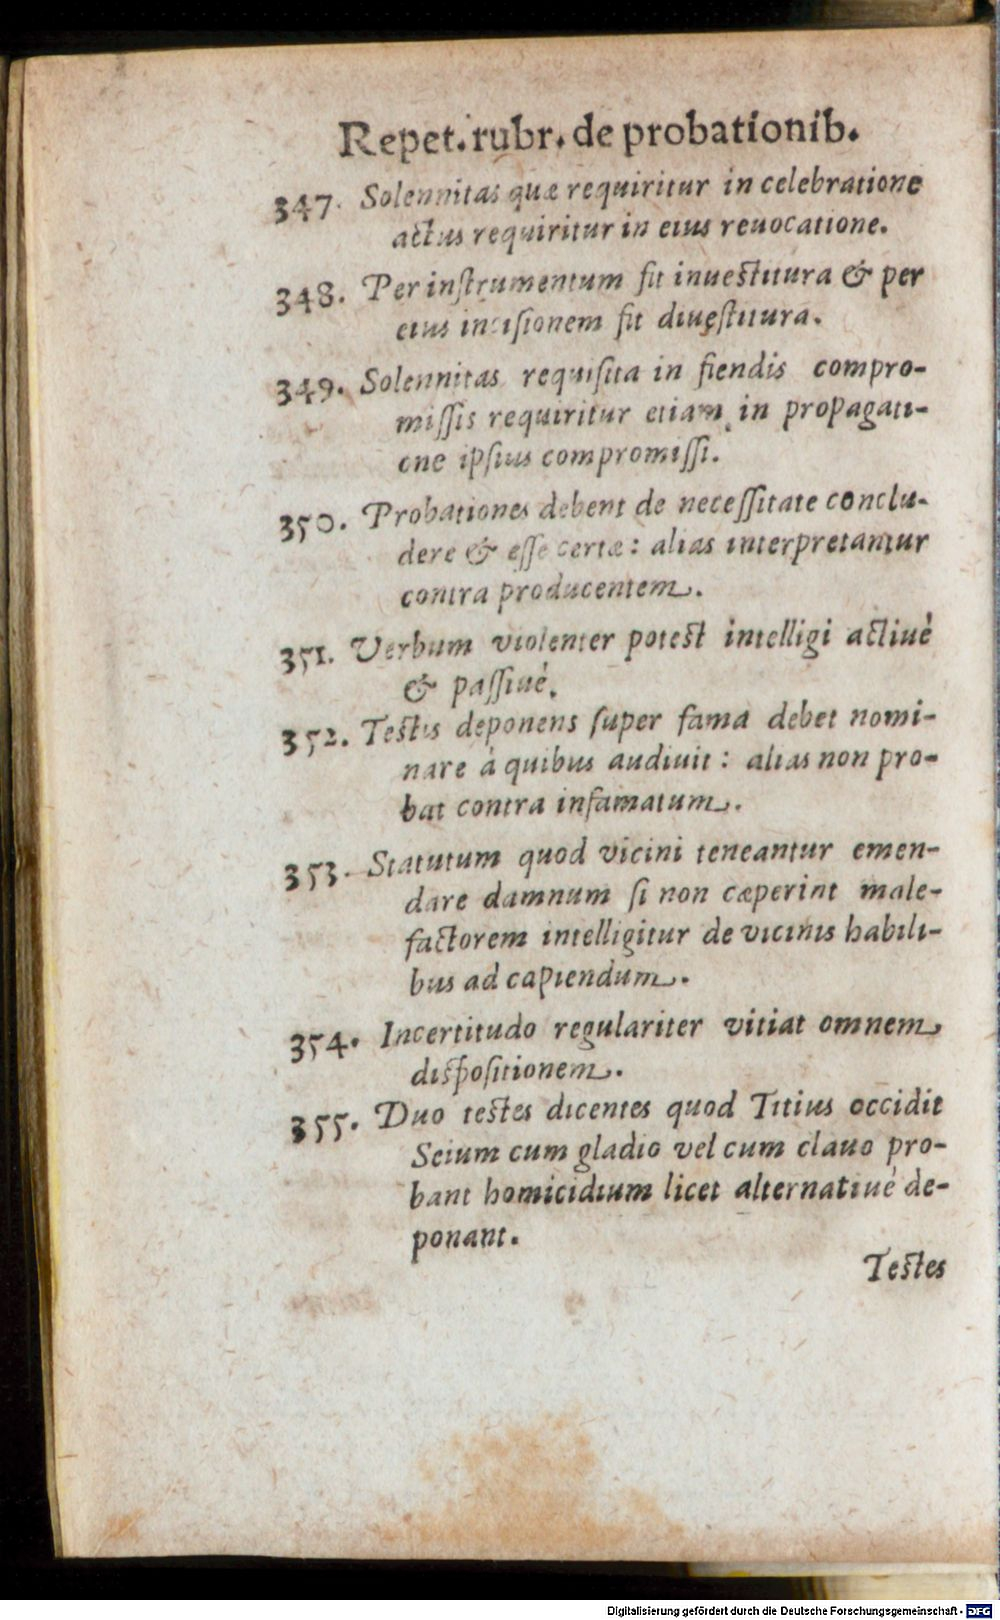 Repet. rubr. de probationib.
347. Solennitas quæ requiritur in celebratione
actus requiritur in eius reuocatione.
348. Per instrumentum fit inuestitura & per
eius incisionem fit diuęstitura.
349. Solennitas requisita in fiendis compro-
missis requiritur etiam in propagati-
one ipsius compromissi.
350. Probationes debent de necessitate conclu-
dere & esse certæ: alias interpretantur
contra producentem.
351. Verbum violenter potest intelligi actiuè
& passiuè.
352. Testis deponens super fama debet nomi-
nare à quibus audiuit: alias non pro-
bat contra infamatum.
353. Statutum quod vicini teneantur emen-
dare damnum si non cæperint male-
factorem intelligitur de vicinis habili-
bus ad capiendum.
354. Incertitudo regulariter vitiat omnem
dispositionem.
355. Duo testes dicentes quod Titius occidit
Seium cum gladio vel cum clauo pro-
bant homicidium licet alternatiuè de-
ponant.
Testes
Digitalisierung gefördert durch die Deutsche Forschungsgemeinschaft - DFG